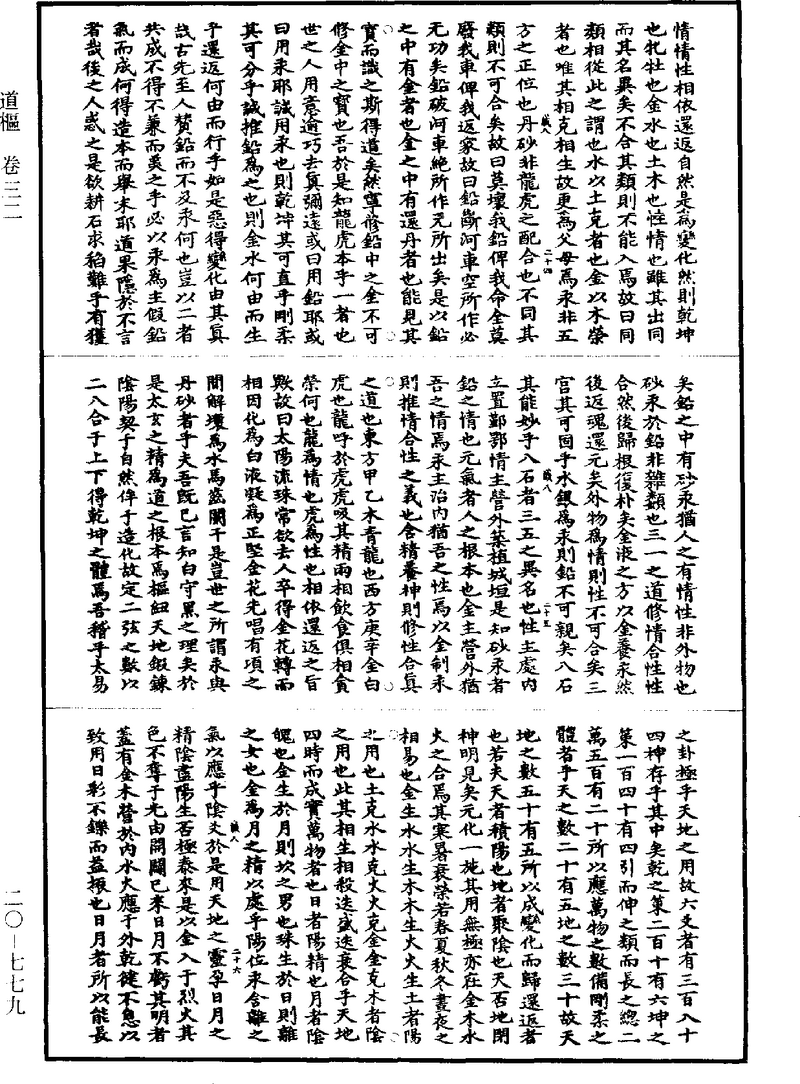 道樞 卷三二
二〇—七七九
情情性相依還返自然是爲變化然則乾坤
也牝牡也金水也土木也性情也雖其出同
而其名異矣不合其類則不能入焉故曰同
類相從此之謂也水以土克者也金以木榮
者也唯其相克相生故更爲父母焉汞非五
方之正位也丹砂非龍虎之配合也不同其
類則不可合矣故曰莫壞我鉛俾我命全莫
廢我車俾我返家故曰鉛斷河車空所作必
无功矣鉛破河車絶所作无所出矣是以鉛
之中有金者也金之中有還丹者也能見其
寳而識之斯得道矣然寧修鉛中之金不可
修金中之寳也吾於是知龍虎本乎一者也
世之人用意逾巧去眞彌遠或曰用鉛耶或
曰用汞耶誠用汞也則乾坤其可直乎剛柔
其可分乎誠推鉛爲之也則金水何由而生
乎還返何由而行乎如是惡得變化由其眞
哉古先至人贊鉛而不及汞何也豈以二者
共成不得不兼而美之乎必以汞爲主假鉛
氣而成何得造本而舉末耶道果隱於不言
者哉後之人惑之是欲耕石求稻難乎有獲
矣鉛之中有砂汞猶人之有情性非外物也
砂汞於鉛非雜類也三一之道修情合性性
合然後歸根復朴矣金液之方以金養汞然
後返魂還元矣外物爲情則性不可合矣三
宫其可固乎水銀爲汞則鉛不可親矣八石
其能妙乎八石者三五之異名也性主處内
立置鄞鄂情主營外築植城垣是知砂汞者
鉛之情也元氣者人之根本也金主營外猶
吾之情焉汞主治内猶吾之性焉以金制汞
則推情合性之義也含精養神則修性合眞
之道也東方甲乙木青龍也西方庚辛金白
虎也龍呼於虎虎吸其精兩相飲食俱相貪
榮何也龍爲情也虎爲性也相依還返之旨
歟故曰太陽流珠常欲去人卒得金花轉而
相因化爲白液凝爲正堅金花先唱有項之
間解壞爲水馬齒闌干是豈世之所謂汞與
丹砂者乎夫吾既已言知白守黑之理矣於
是太玄之精爲道之根本焉樞紐天地鍛鍊
陰陽契于自然侔于造化故定二弦之數以
二八合于上下得乾坤之體焉吾稽乎太易
之卦極乎天地之用故六爻者有三百八十
四神存乎其中矣乾之策二百十有六坤之
策一百四十有四引而伸之類而長之總二
萬五百有二十所以應萬物之數備剛柔之
體者乎天之數二十有五地之數三十故天
地之數五十有五所以成變化而歸還返者
也若夫天者積陽也地者聚陰也天否地閉
神明見矣元化一施其用無極亦在金木水
火之合焉其寒暑衰榮若春夏秋冬晝夜之
相易也金生水水生木木生火火生土者陽
之用也土克水水克火火克金金克木者陰
之用也此其相生相殺迭盛迭衰合乎天地
四時而成實萬物者也日者陽精也月者陰
魄也金生於月則坎之男也珠生於日則離
之女也金爲月之精以處乎陽位汞含離之
氣以應乎陰爻於是用天地之靈孕日月之
精陰盡陽生否極泰來是以金入于烈火其
色不奪于光由開闢已來日月不虧其明者
蓋有金木營於内水火應于外乾健不息以
致用日彩不鑠而益振也日月者所以能長